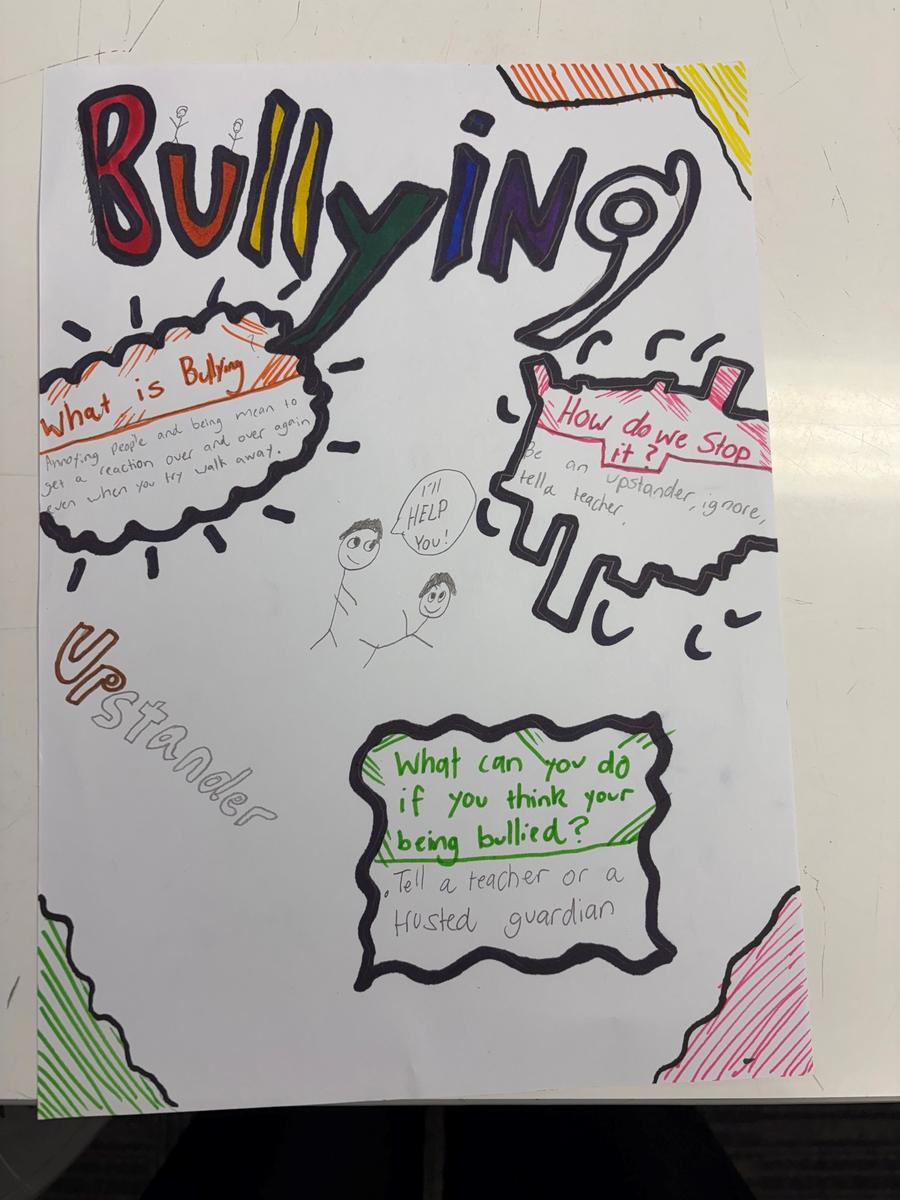 Bullying
What is Bullying?
Annoying people and being mean to
get a reaction over and over again
even when you try walk away.
How do we Stop
it?
Be an upstander, ignore,
tell a teacher.
I'll
HELP
You!
Upstander
What can you do
if you think your
being bullied?
. Tell a teacher or a
trusted guardian